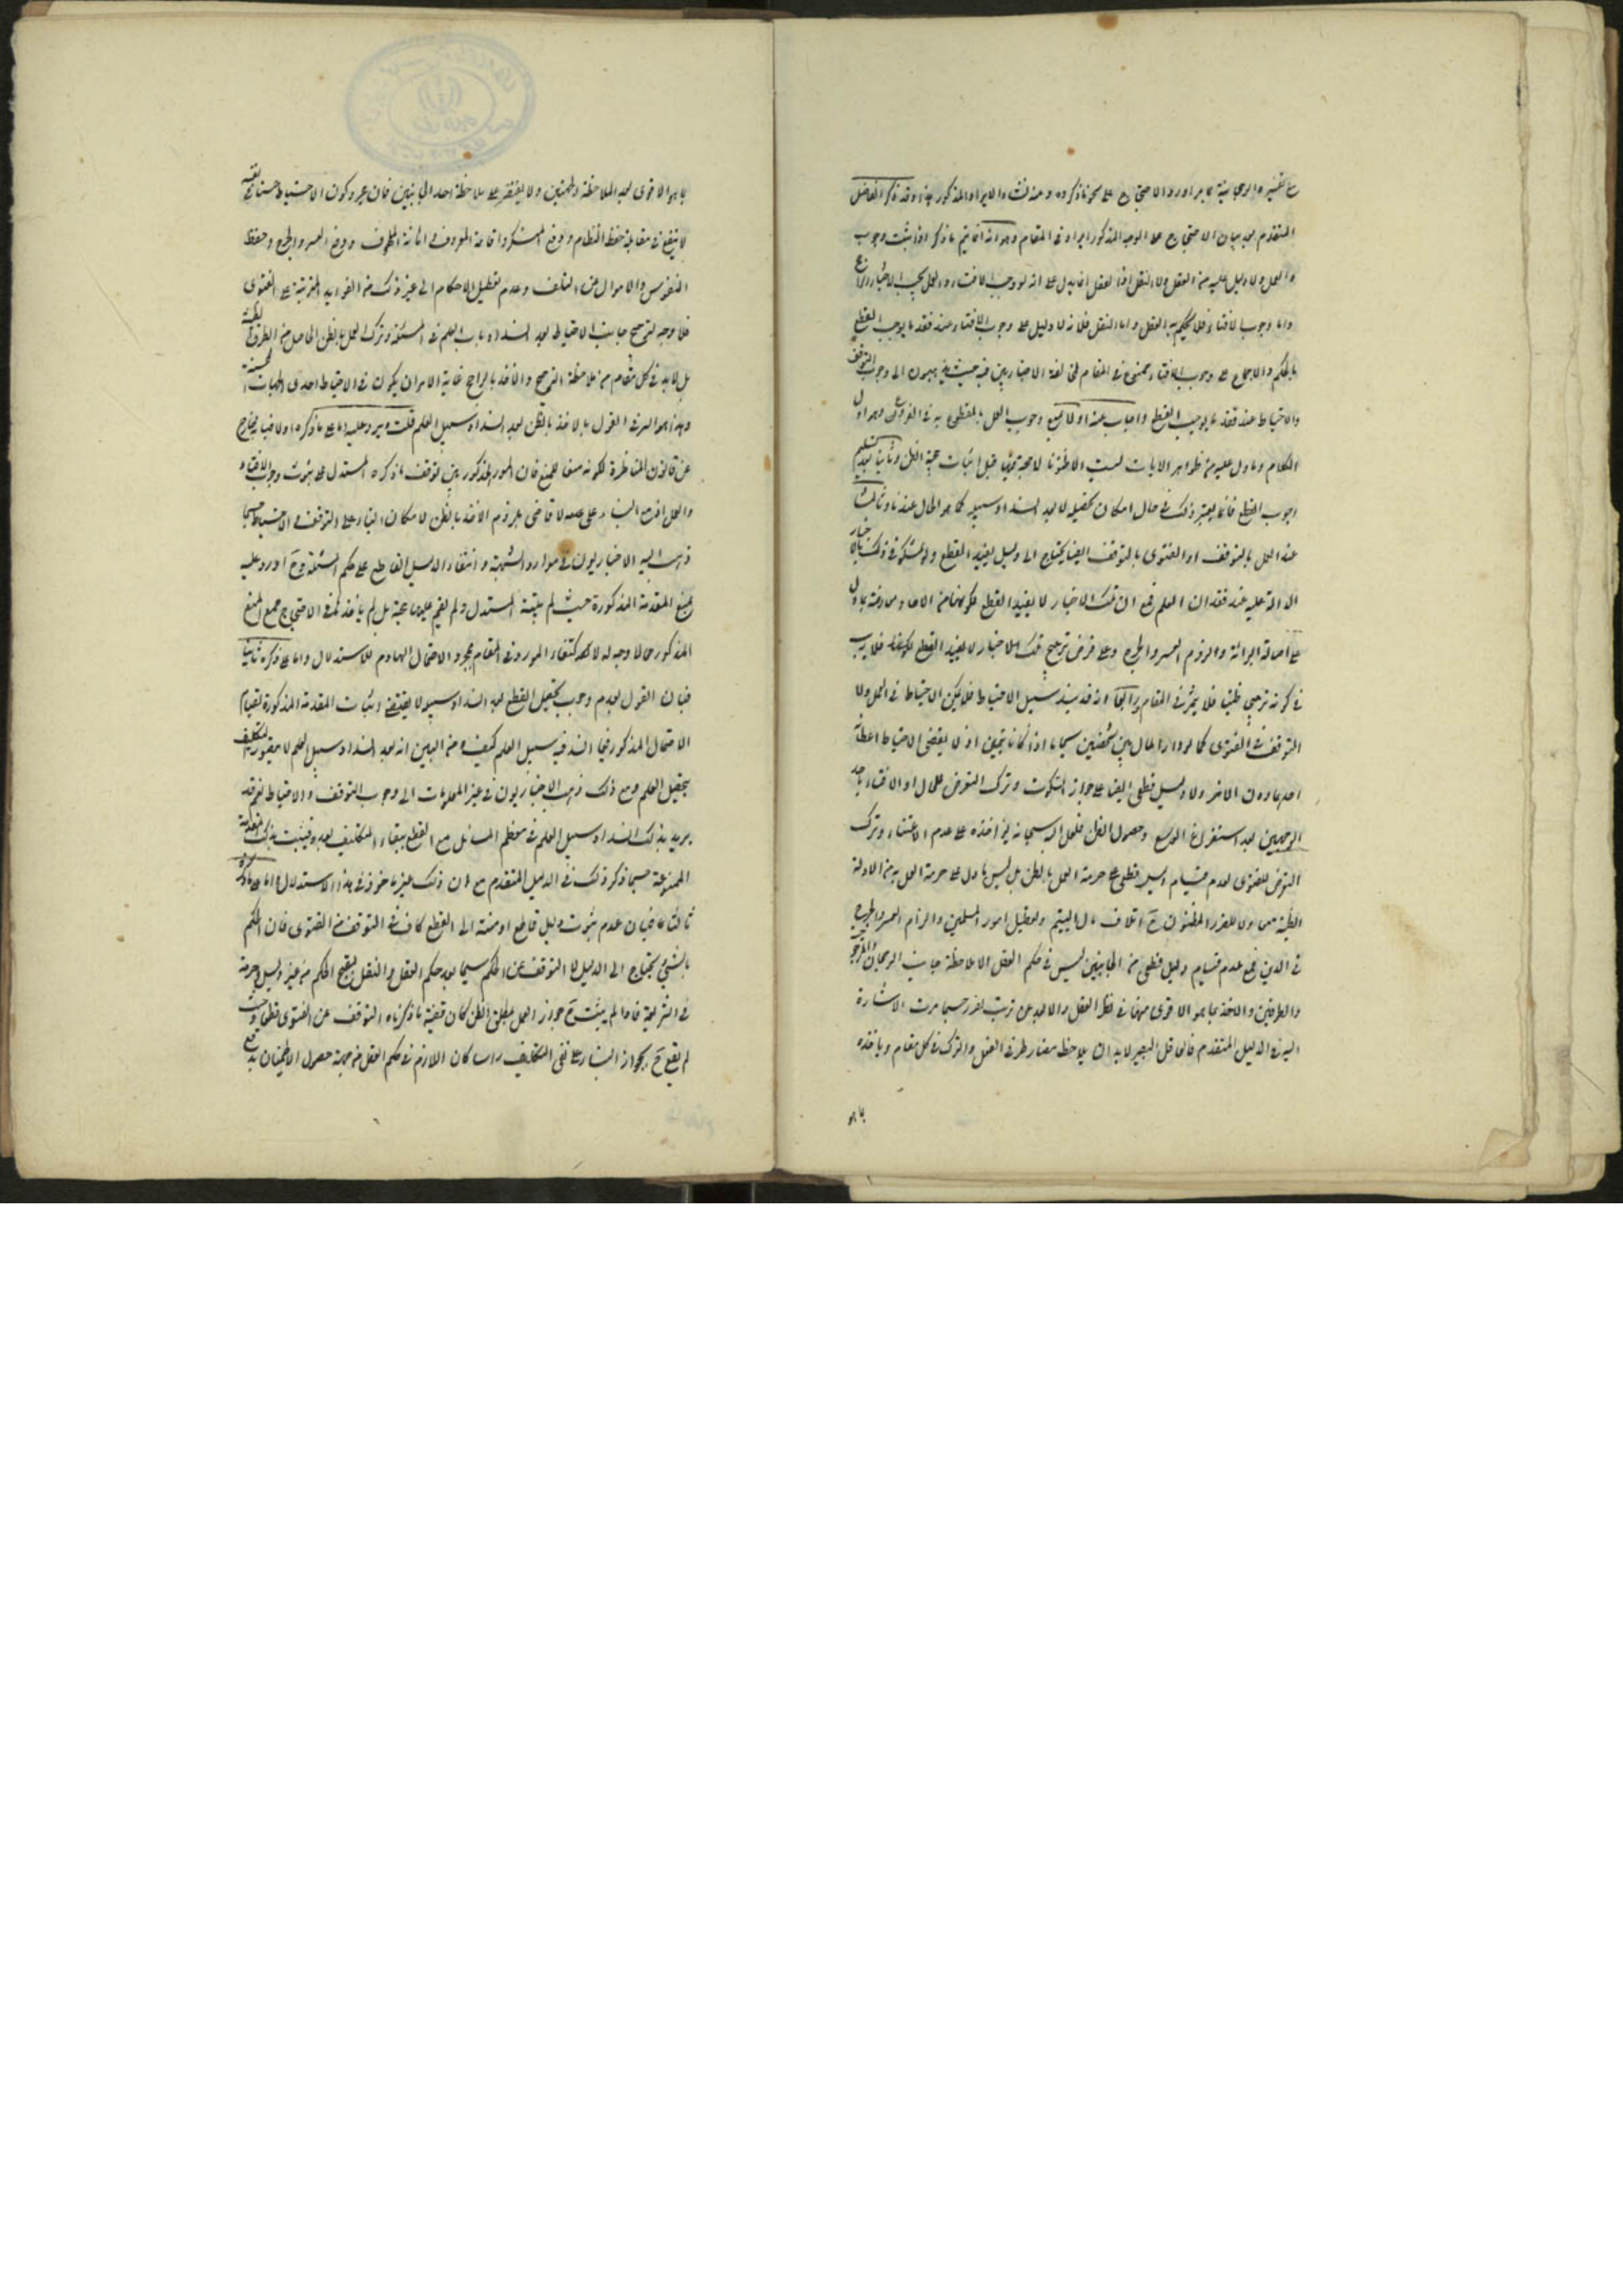 مع تفسير الرجحانية بما مر اورد الاحتجاج على نحو ما ذكروه ومنه نشاء الايراد المذكور هذا وقد ذكر الفاضل
المتقدم بعد بيان الاحتجاج على الوجه المذكور ايرادا في المقام وهو انه انما يتم ما ذكر اذا ثبت وجوب
والعمل ولا دليل عليه من العقل ولا النقل اذا العقل انما يدل على انه لو وجب الافتاء والعمل يجب الاختيار
واما وجوب الافتاء فلا يحكم به العقل واما النقل فلانه لا دليل على وجوب الافتاء عند فقد ما يوجب القطع
بالحكم والاجماع على وجوب الافتاء ممنوع في المقام لمخالفة الاخباريين فيه حيث يذهبون الى وجوب التوقف
والاحتياط عند فقد ما يوجب القطع واجاب عنه اولا بمنع وجوب العمل بالمقطوع به في الفروع وهو اول
الكلام وما دل عليه من ظواهر الايات ليست الا ظنونا لا حجة فيها قبل اثبات حجية الظن وثانيا بعد تسليم
وجوب القطع فانما يعتبر ذلك في حال امكان تحصيله لا بعد انسداد سبيله كما هو الحال عندنا وثالثا
عند العمل بالتوقف او الفتوى بالتوقف ايضا يحتاج الى دليل يفيد القطع ولو تمسكوا في ذلك بالاخبار
الدالة عليه عند فقدان العلم فمع ان تلك الاخبار لا يفيد القطع لكونها من الاحاد معارضة بما دل
على اصالة البرائة ولزوم العسر والحرج وعلى فرض ترجيح تلك الاخبار لا يفيد القطع فلا ريب
في كونه ترجيحا ظنيا فلا يثمر في المقام وانه قد ينسد سبيل الاحتياط فلا يمكن الاحتياط في العمل ولا
التوقف في الفتوى كما لو دار المال بين شخصين سيما اذا كانا يتيمين اذ لا يقضي الاحتياط اعطائه
احدهما دون الاخر ولا دليل قطعي ايضا على جواز السكوت وترك التعرض للحال او الافتاء باحد
الوجهين بعد استفراغ الوسع وحصول الظن فلعل الله سبحانه يؤاخذه على عدم الاعتناء وترك
التعرض للفتوى لعدم قيام دليل قطعي على حرمة العمل بالظن بل ليس ما دل على حرمة العمل به من الادلة
الظنية معادلا للضرر المظنون اتلاف مال اليتيم وتعطيل امور المسلمين والزام العسر والحرج
في الدين فمع عدم قيام دليل قطعي من الجانبين ليس في حكم العقل الا ملاحظة جانب الرجحان
والطرفين والاخذ بما هو الاقوى منهما في نظر العقل والابعد عن ترتب الضرر حسبما مرت الاشارة
اليه في الدليل المتقدم فالعاقل البصير لا بد ان يلاحظ مضار طرفي الفعل والترك في كل مقام وياخذ
بما هو
بما هو الاقوى بعد الملاحظة ولا يقتصر على ملاحظة احد الجانبين فان مجرد كون الاحتياط حسنا في نفسه
لا ينفع في مقابلة حفظ النظام ورفع المنكر واقامة المعروف واغاثة الملهوف ورفع العسر والحرج وحفظ
النفوس والاموال عن التلف وعدم تعطيل الاحكام الى غير ذلك من الفوايد المترتبة على الفتوى
فلا وجه لترجيح جانب الاحتياط بعد انسداد باب العلم في المسئلة وترك العمل بالظن الحاصل من الطرق الظنية
بل لا بد في كل مقام من ملاحظة الترجيح والاخذ بالراجح غاية الامر ان يكون في الاحتياط احدى الجهات المحسنة
وهذا هو السر في القول بالاخذ بالظن بعد انسداد سبيل العلم قلت ويرد عليه اما على ما ذكره اولا فبانه خارج
عن قانون المناظرة لكونه منعا للمنع فان المورد المذكور بين توقف ما ذكره المستدل على ثبوت وجوب الافتاء
والعمل اذ مع البناء على عدمه لا قاضي بلزوم الاخذ بالظن لامكان البناء على التوقف والاحتياط حسبما
ذهب اليه الاخباريون في موارد الشبهة وانتفاء الدليل القاطع على حكم المسئلة فح اورد عليه
بمنع المقدمة المذكورة حيث لم يثبته المستدل ولم يقم عليها حجة بل لم ياخذها في الاحتجاج فمنع المنع
المذكور مما لا وجه له لاكتفاء المورد في المقام بمجرد الاحتمال الهادم للاستدلال واما على ما ذكره ثانيا
فبان القول بعدم وجوب تحصيل القطع بعد انسداد سبيله لا يقتضي اثبات المقدمة المذكورة لقيام
الاحتمال المذكور فيما انسد فيه سبيل العلم كيف ومن البين انه بعد انسداد سبيل العلم لا يتعقل التكليف
بتحصيل العلم ومع ذلك ذهب الاخباريون في غير المعلومات الى وجوب التوقف والاحتياط نعم قد
يريد بذلك انسداد سبيل العلم في معظم المسائل مع القطع ببقاء التكليف بعده فيثبت بذلك المقدمة
الممنوعة حسبما ذكر ذلك في الدليل المتقدم مع ان ذلك غير ماخوذ في هذا الاستدلال واما على ما ذكره
ثالثا فبان عدم ثبوت دليل قاطع او منته الى القطع كاف في التوقف عن الفتوى فان الحكم
بالشيء يحتاج الى الدليل لا التوقف عن الحكم سيما بعد حكم العقل والنقل بقبح الحكم من غير دليل وحرمته
في الشريعة فاذا لم يثبت ح جواز العمل بمطلق الظن كان قضية ما ذكرناه التوقف عن الفتوى قطعا وحيث
لم يقع ح بجواز البناء على نفي التكليف راسا كان اللازم في حكم العقل من جهة حصول الاطمينان